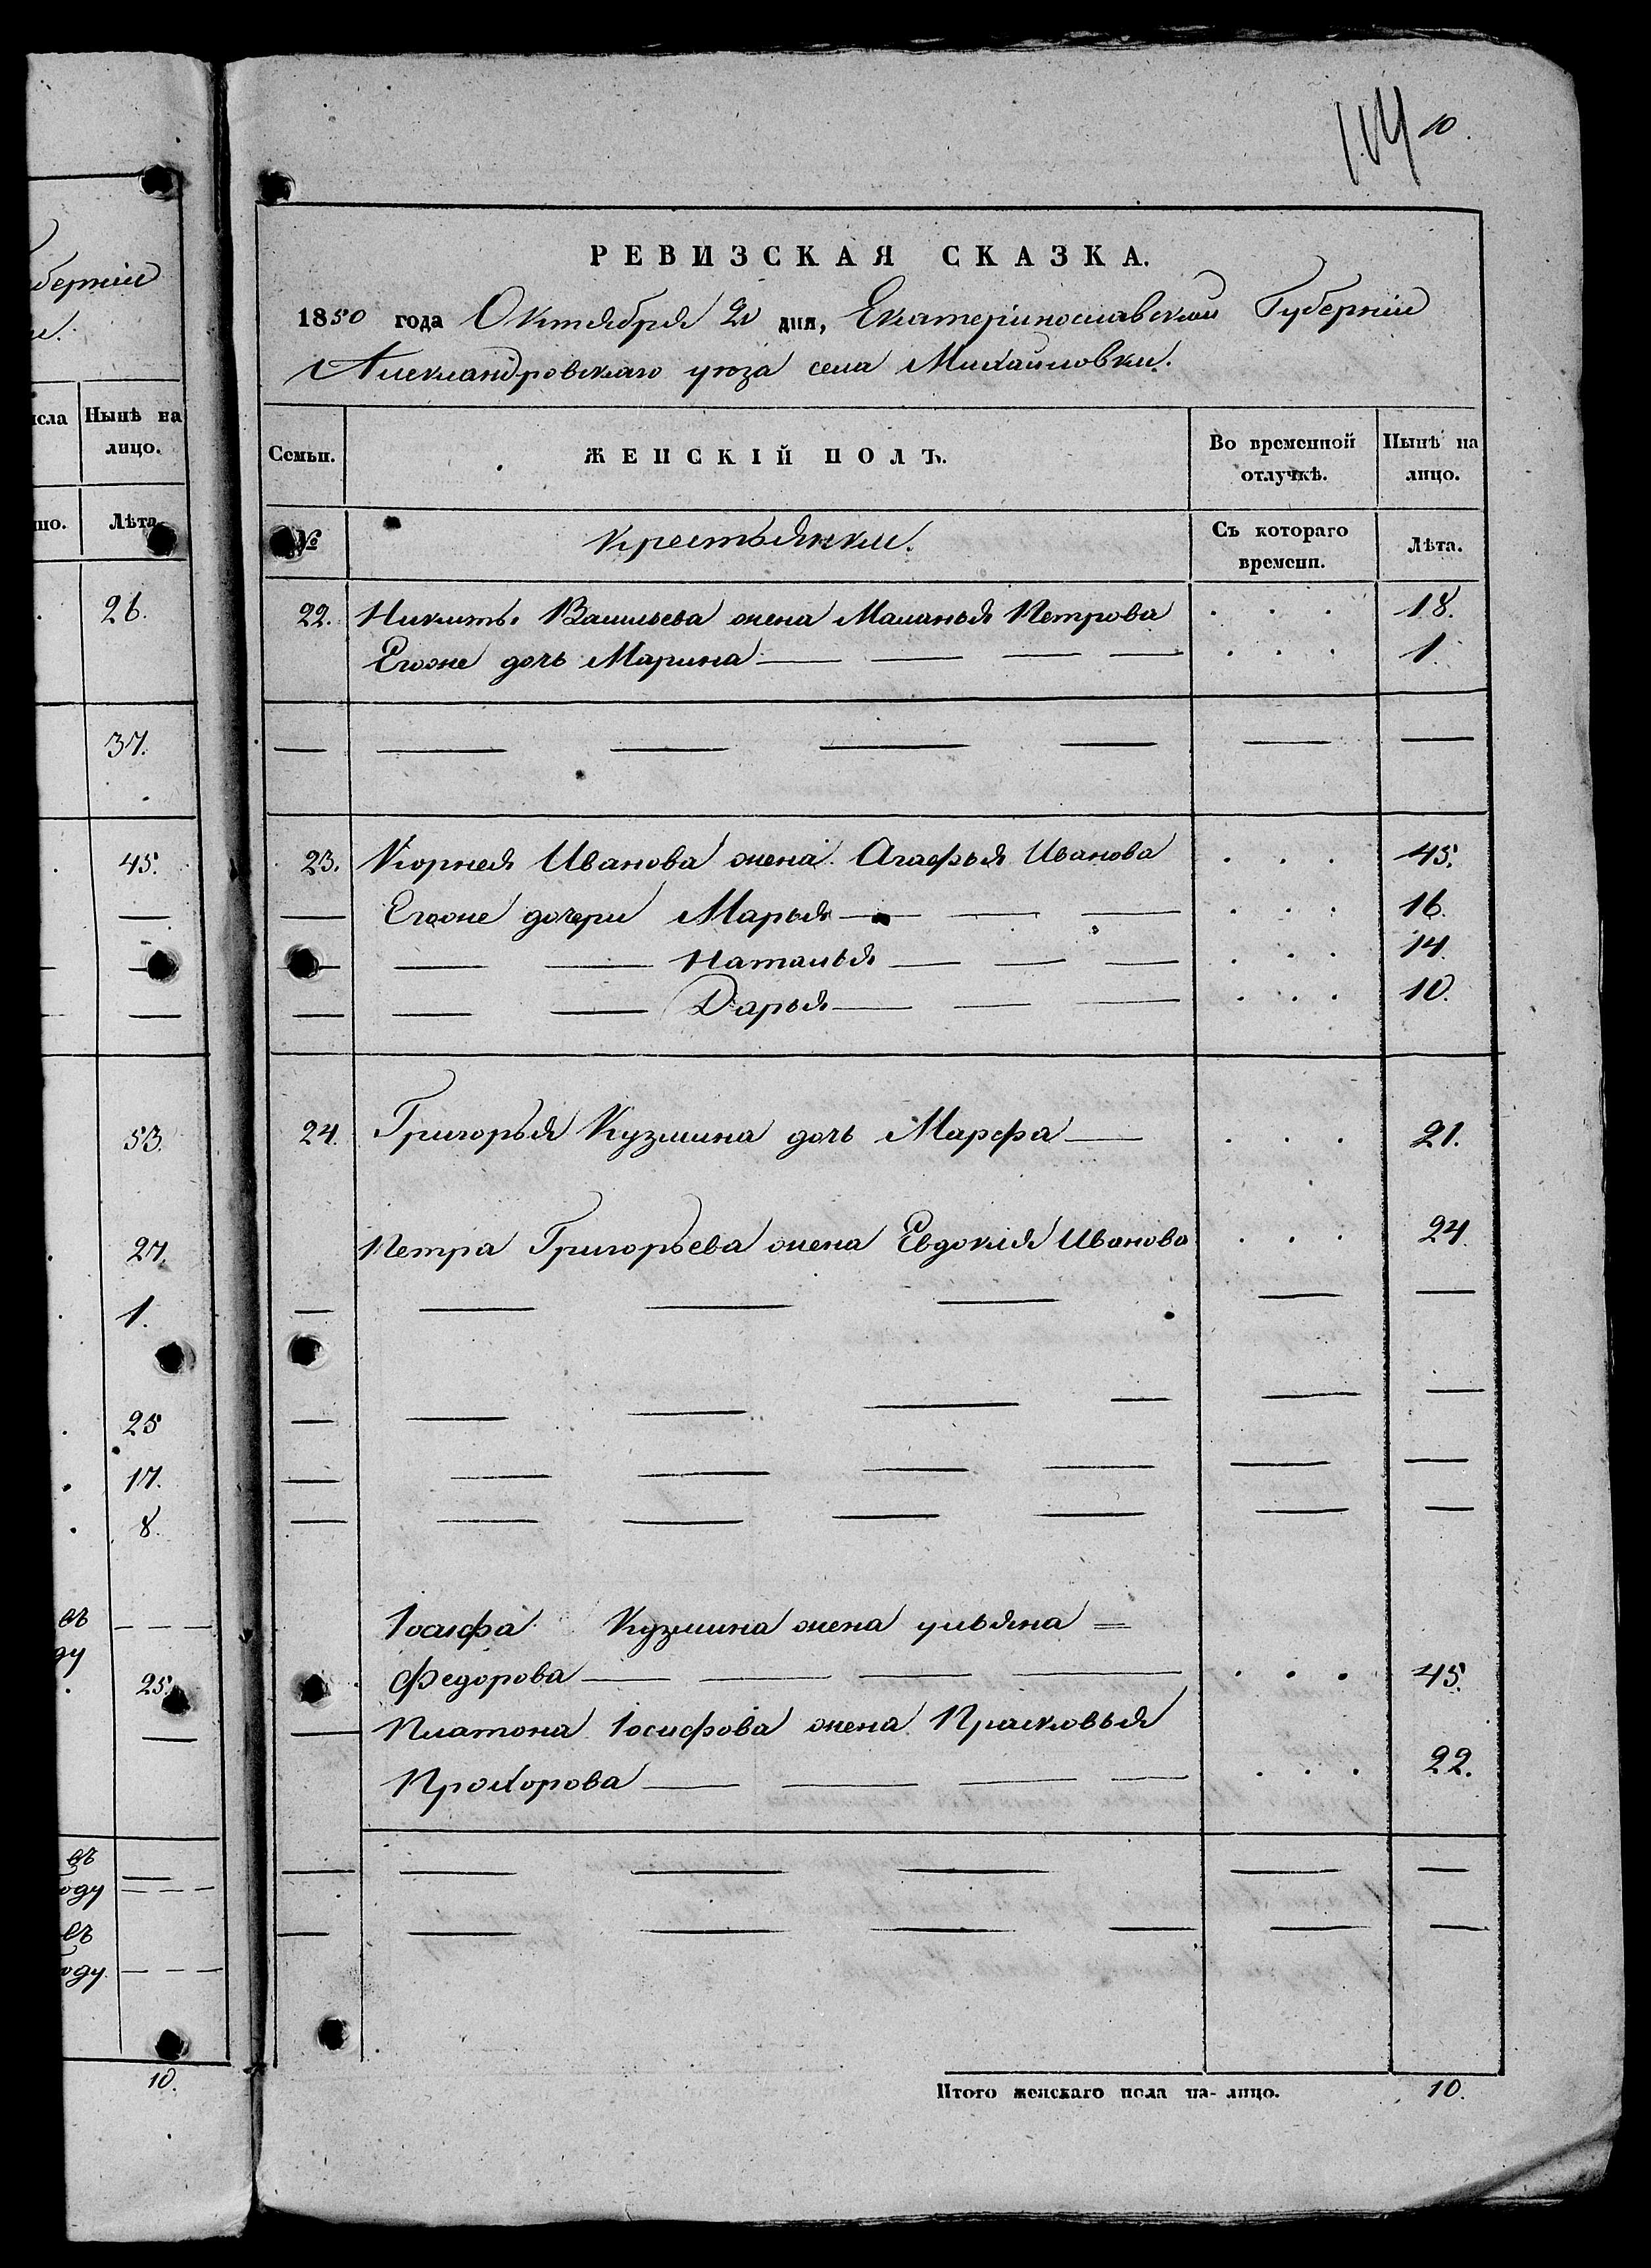 114 10.
беρніи
Ныне на
лицо.
Лѣта
26.
37.
45.
53.
27.
1.
25
17.
8.
въ
ду
25.
въ
оду
въ
году
10.
РЕВИЗСКАЯ СКАЗКА.
1850 года Октября 20 дня, Екатеринославской Губерніи
Александровскаго уѣзда села Михайловки.
Семьи. ЖЕНСКІЙ ПОЛЪ. Во временной отлучкѣ. Нынѣ на лицо.
№ Крестьянки. Съ котораго времени. Лѣта.
22. Никиты Васильева жена Маланья Петрова . . . 18.
Егоже дочь Марина — — — — . . . 1.
23. Корнея Иванова жена Агафья Иванова . . . 45.
Егоже дочери Марья — — — . . . 16.
— — Наталья — — — . . . 14.
— — Дарья — — — . . . 10.
24. Григорья Кузмина дочь Марфа — . . . 21.
Петра Григорьева жена Евдокія Иванова . . . 24.
Іосифа Кузмина жена ульяна =
Федорова — — — — . . . 45.
Платона Іосифова жена Прасковья
Прохорова — — — — . . . 22.
Итого женскаго пола на-лицо. 10.